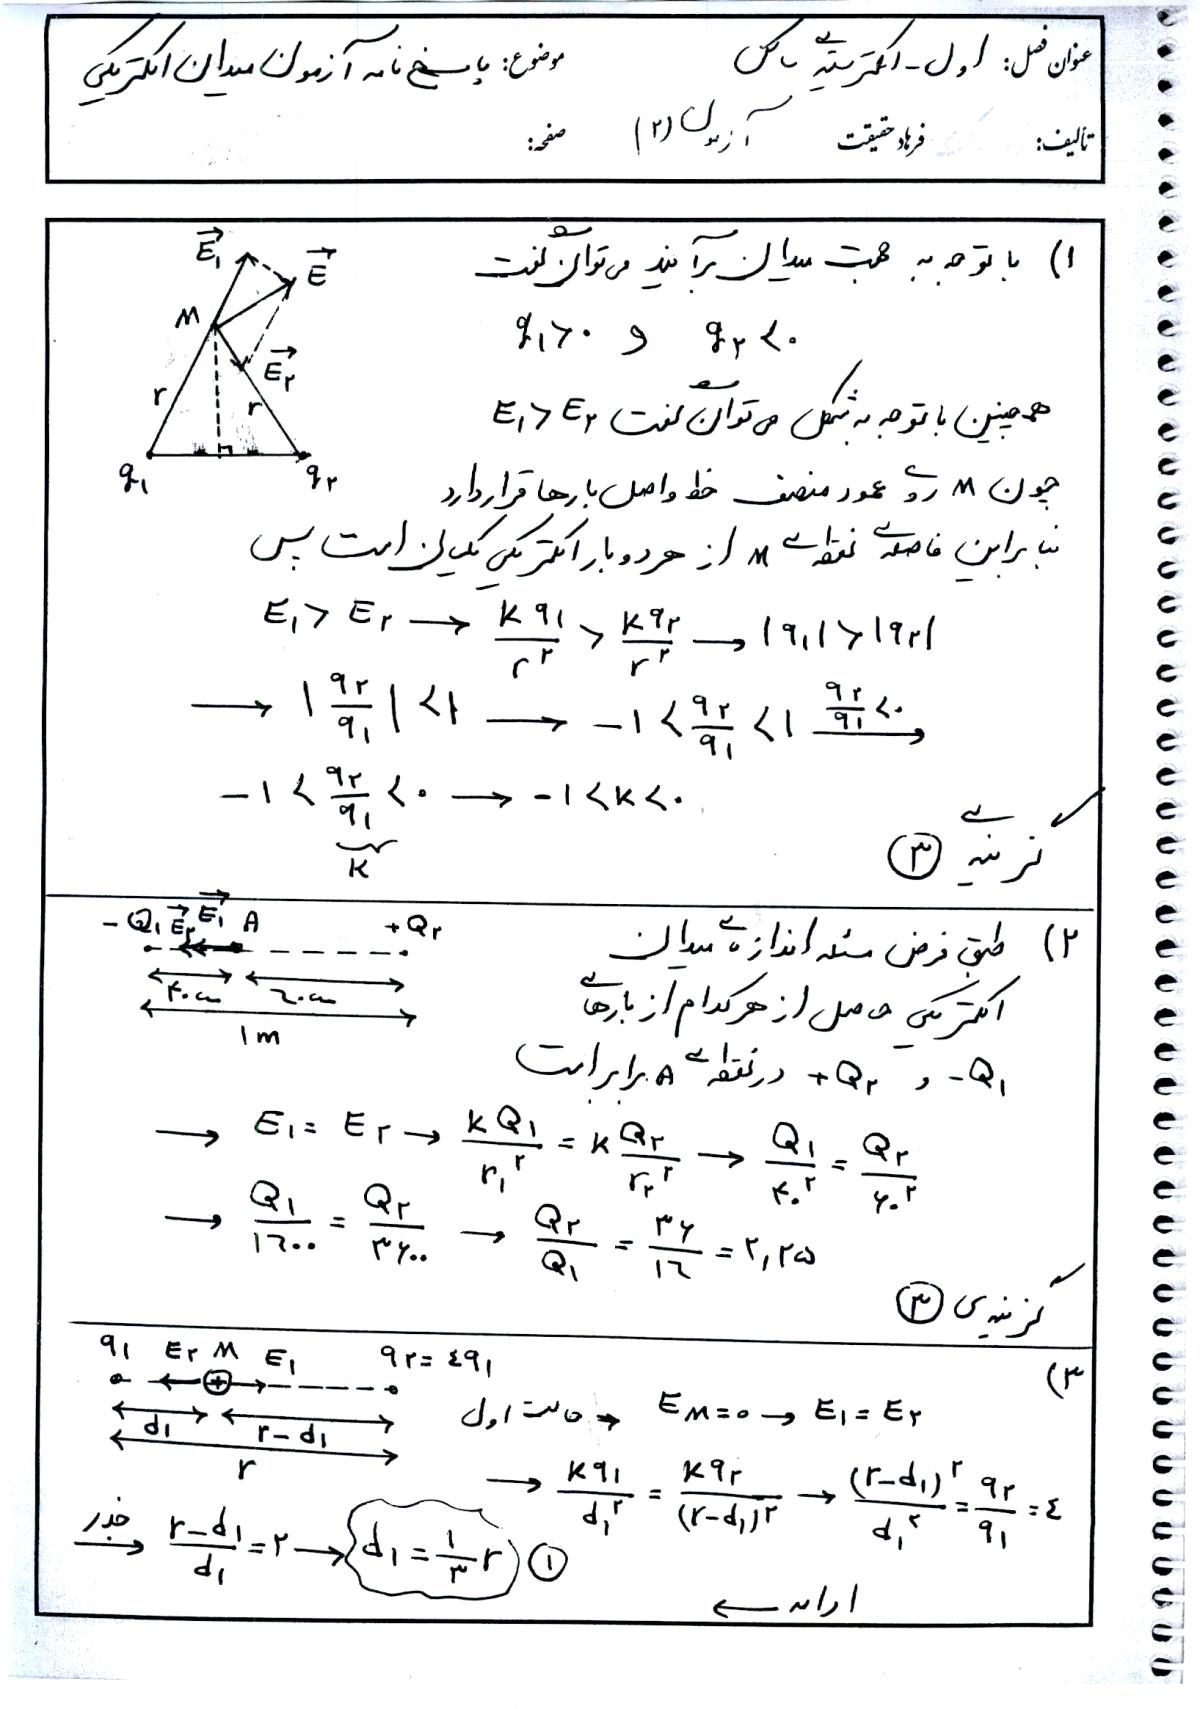 عنوان فصل: اول - الکتریسیته ساکن
موضوع: پاسخ نامه آزمون میدان الکتریکی
تألیف: فرهاد حقیقت
آزمون (۲)
صفحه:
۱) با توجه به جهت میدان برآیند می‌توان گفت
q₁>۰ و q₂<۰
همچنین با توجه به شکل می‌توان گفت E₁>E₂
چون M روی عمود منصف خط واصل بارها قرار دارد
بنابراین فاصله‌ی نقطه‌ی M از هر دو بار الکتریکی یکسان است پس
E₁ > E₂ → kq₁/r² > kq₂/r² → |q₁|>|q₂|
→ |q₂/q₁|<۱ → -۱<q₂/q₁<۱ q₂/q₁<۰ →
-۱<q₂/q₁<۰ → -۱<K<۰
K
گزینه‌ی ۳
E₁
E
M
E₂
r r
q₁ q₂
۲) طبق فرض مسئله اندازه‌ی میدان
الکتریکی حاصل از هر کدام از بارهای
-Q₁ و +Q₂ در نقطه‌ی A برابر است
-Q₁ E₂ E₁ A +Q₂
۴۰cm ۶۰cm
۱m
→ E₁ = E₂ → kQ₁/r₁² = kQ₂/r₂² → Q₁/۴۰² = Q₂/۶۰²
→ Q₁/۱۶۰۰ = Q₂/۳۶۰۰ → Q₂/Q₁ = ۳۶/۱۶ = ۲,۲۵
گزینه‌ی ۳
۳)
q₁ E₂ M E₁ q₂=۴q₁
d₁ r-d₁
r
حالت اول → E_M=۰ → E₁=E₂
→ kq₁/d₁² = kq₂/(r-d₁)² → (r-d₁)²/d₁² = q₂/q₁ = ۴
جذر → r-d₁/d₁ = ۲ → d₁=۱/۳ r ①
ادامه ←